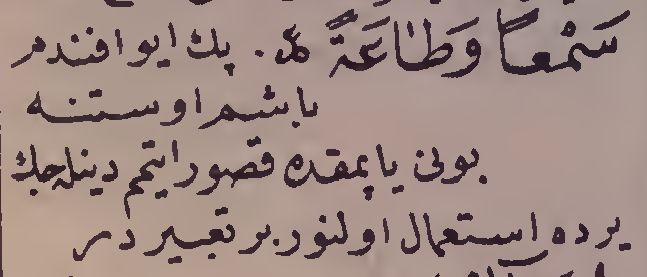 سَمْعاً وَطَاعَةً ع. پك ايو افندم
باشم اوستنه
بونى ياپمقده قصور ايتمم دينله‌جك
يرده استعمال اولنور بر تعبيردر